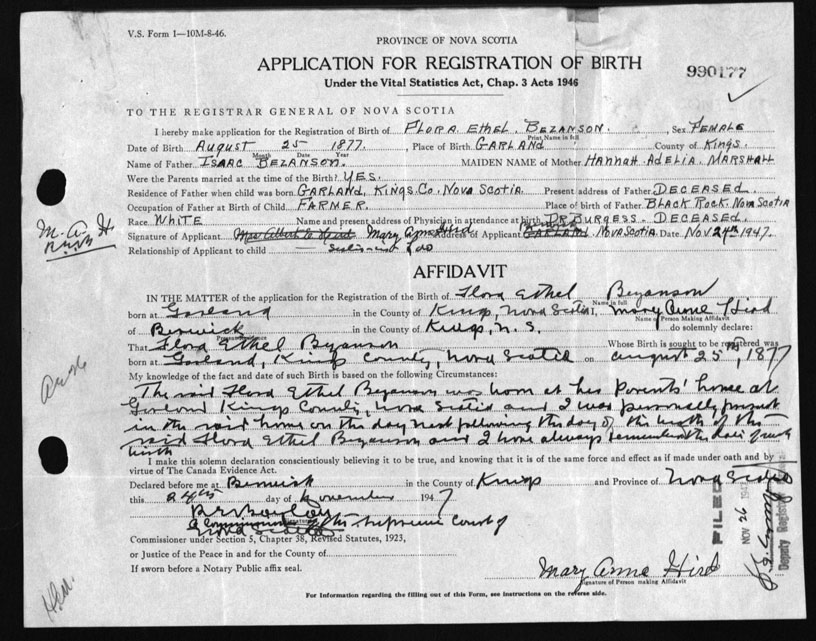 V.S. Form 1—10M-8-46.
PROVINCE OF NOVA SCOTIA
APPLICATION FOR REGISTRATION OF BIRTH
Under the Vital Statistics Act, Chap. 3 Acts 1946
990177
TO THE REGISTRAR GENERAL OF NOVA SCOTIA
I hereby make application for the Registration of Birth of FLORA ETHEL BEZANSON. Sex FEMALE
Print Name in full
Date of Birth AUGUST 25 1877. Place of Birth GARLAND County of KINGS.
Month Date Year
Name of Father ISAAC BEZANSON. MAIDEN NAME of Mother HANNAH ADELIA MARSHALL
Were the Parents married at the time of the Birth? YES.
Residence of Father when child was born GARLAND, KINGS. CO. NOVA SCOTIA. Present address of Father DECEASED.
Occupation of Father at Birth of Child FARMER. Place of birth of Father BLACK ROCK. NOVA SCOTIA
Race WHITE Name and present address of Physician in attendance at birth DR BURGESS. DECEASED.
M. A. H.
Signature of Applicant Mary Anne Hird Address of Applicant Berwick GARLAND. NOVA SCOTIA. Date NOV 24th 1947.
Relationship of Applicant to child Sister-in-law
AFFIDAVIT
IN THE MATTER of the application for the Registration of the Birth of Flora Ethel Bezanson
Name in full
born at Garland in the County of Kings, Nova Scotia I, Mary Anne Hird
Name of Person Making Affidavit
of Berwick in the County of Kings, N. S. do solemnly declare:
That Flora Ethel Bezanson Whose Birth is sought to be registered was
born at Garland, Kings County, Nova Scotia on August 25th, 1877
My knowledge of the fact and date of such Birth is based on the following Circumstances:
The said Flora Ethel Bezanson was born at her Parents' home at
Garland Kings County, Nova Scotia and I was personally present
in the said home on the day next following the day of the birth of the
said Flora Ethel Bezanson and I have always remembered the date of such
birth
I make this solemn declaration conscientiously believing it to be true, and knowing that it is of the same force and effect as if made under oath and by
virtue of The Canada Evidence Act.
Declared before me at Berwick in the County of Kings and Province of Nova Scotia
this 24th day of November 1947
A Commissioner of the Supreme Court of
Nova Scotia
Commissioner under Section 5, Chapter 38, Revised Statutes, 1923,
or Justice of the Peace in and for the County of
If sworn before a Notary Public affix seal.
Mary Anne Hird
Signature of Person making Affidavit
For Information regarding the filling out of this Form, see instructions on the reverse side.
FILED
NOV 26
Deputy Registrar